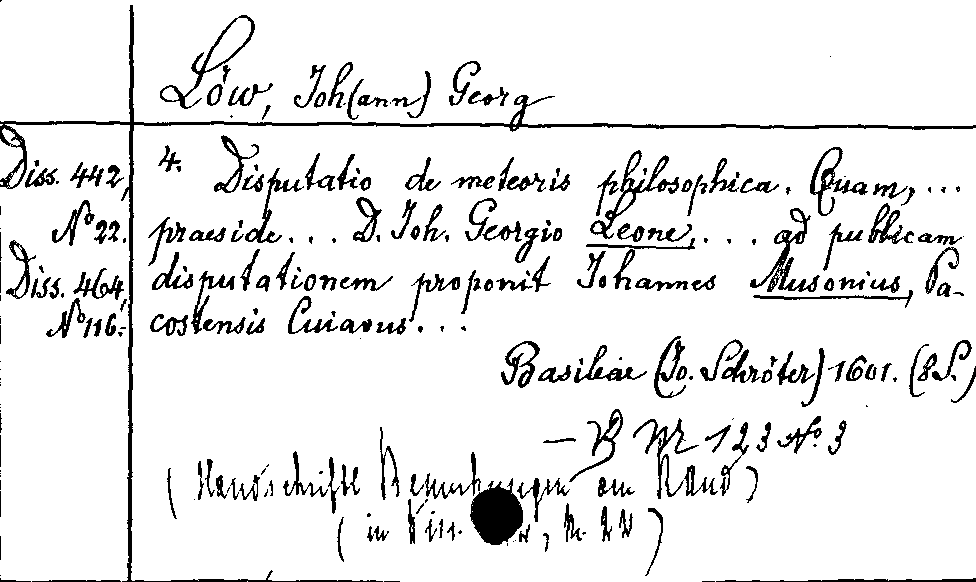 Löw, Joh(ann) Georg
Diss. 442,
N° 22.
Diss. 464,
N° 116.
4. Disputatio de meteoris philosophica. Quam, ...
praeside ... D. Joh. Georgio Leone, ... ad publicam
disputationem proponit Johannes Musonius, Pa-
costensis Cuiavus ...
Basileae (Jo. Schröter) 1601. (8 S.)
123 N° 3
(Handschriftl Bemerkungen am Rand)
(in Diss. , N. 22)